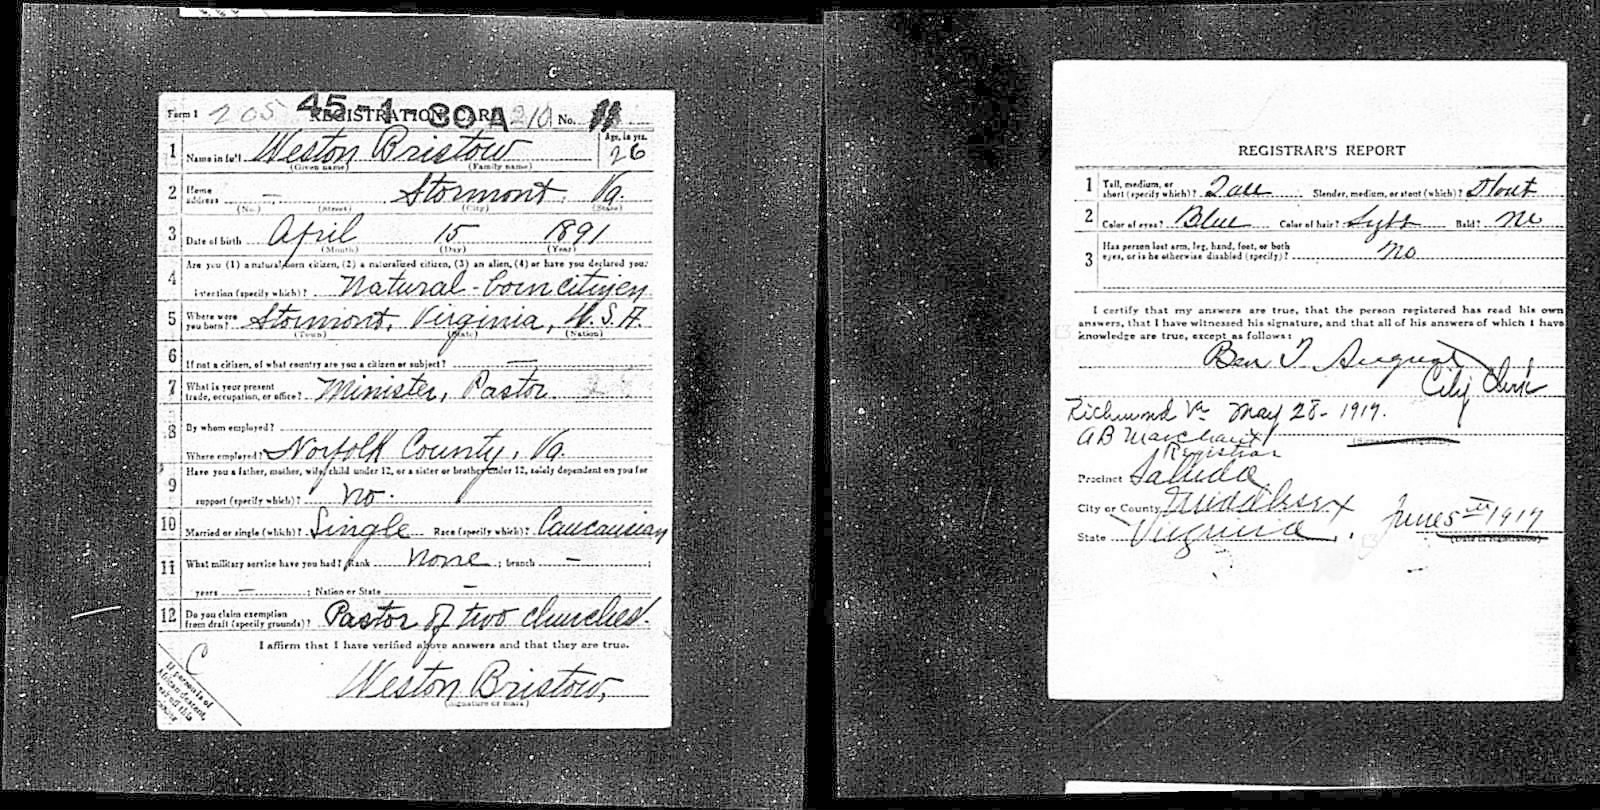 Form 1 205 REGISTRATION CARD 210 No. 11
45-1-30 A
1 Name in full Weston Bristow Age, in yrs. 26
(Given name) (Family name)
2 Home address — Stormont, Va.
(No.) (Street) (City) (State)
3 Date of birth April 15 1891
(Month) (Day) (Year)
4 Are you (1) a natural-born citizen, (2) a naturalized citizen, (3) an alien, (4) or have you declared your
intention (specify which)? Natural-born citizen
5 Where were you born? Stormont, Virginia, U.S.A.
(Town) (State) (Nation)
6 If not a citizen, of what country are you a citizen or subject? —
7 What is your present trade, occupation, or office? Minister, Pastor
8 By whom employed?
Where employed? Norfolk County, Va.
9 Have you a father, mother, wife, child under 12, or a sister or brother under 12, solely dependent on you for
support (specify which)? No.
10 Married or single (which)? Single Race (specify which)? Caucausian
11 What military service have you had? Rank None ; branch — ;
years — ; Nation or State —
12 Do you claim exemption from draft (specify grounds)? Pastor of two churches.
I affirm that I have verified above answers and that they are true.
C
Weston Bristow,
(Signature or mark)
If person is of
African descent,
tear off this
corner
REGISTRAR'S REPORT
1 Tall, medium, or short (specify which)? Tall Slender, medium, or stout (which)? Stout
2 Color of eyes? Blue Color of hair? Light Bald? No
3 Has person lost arm, leg, hand, foot, or both
eyes, or is he otherwise disabled (specify)? No
I certify that my answers are true, that the person registered has read his own
answers, that I have witnessed his signature, and that all of his answers of which I have
knowledge are true, except as follows:
Ben T. August
City Clerk
Richmond Va May 28- 1917.
AB Marchant
Registrar
Precinct Saluda
City or County Middlesex
State Virginia. June 5th 1917
(Date of registration)